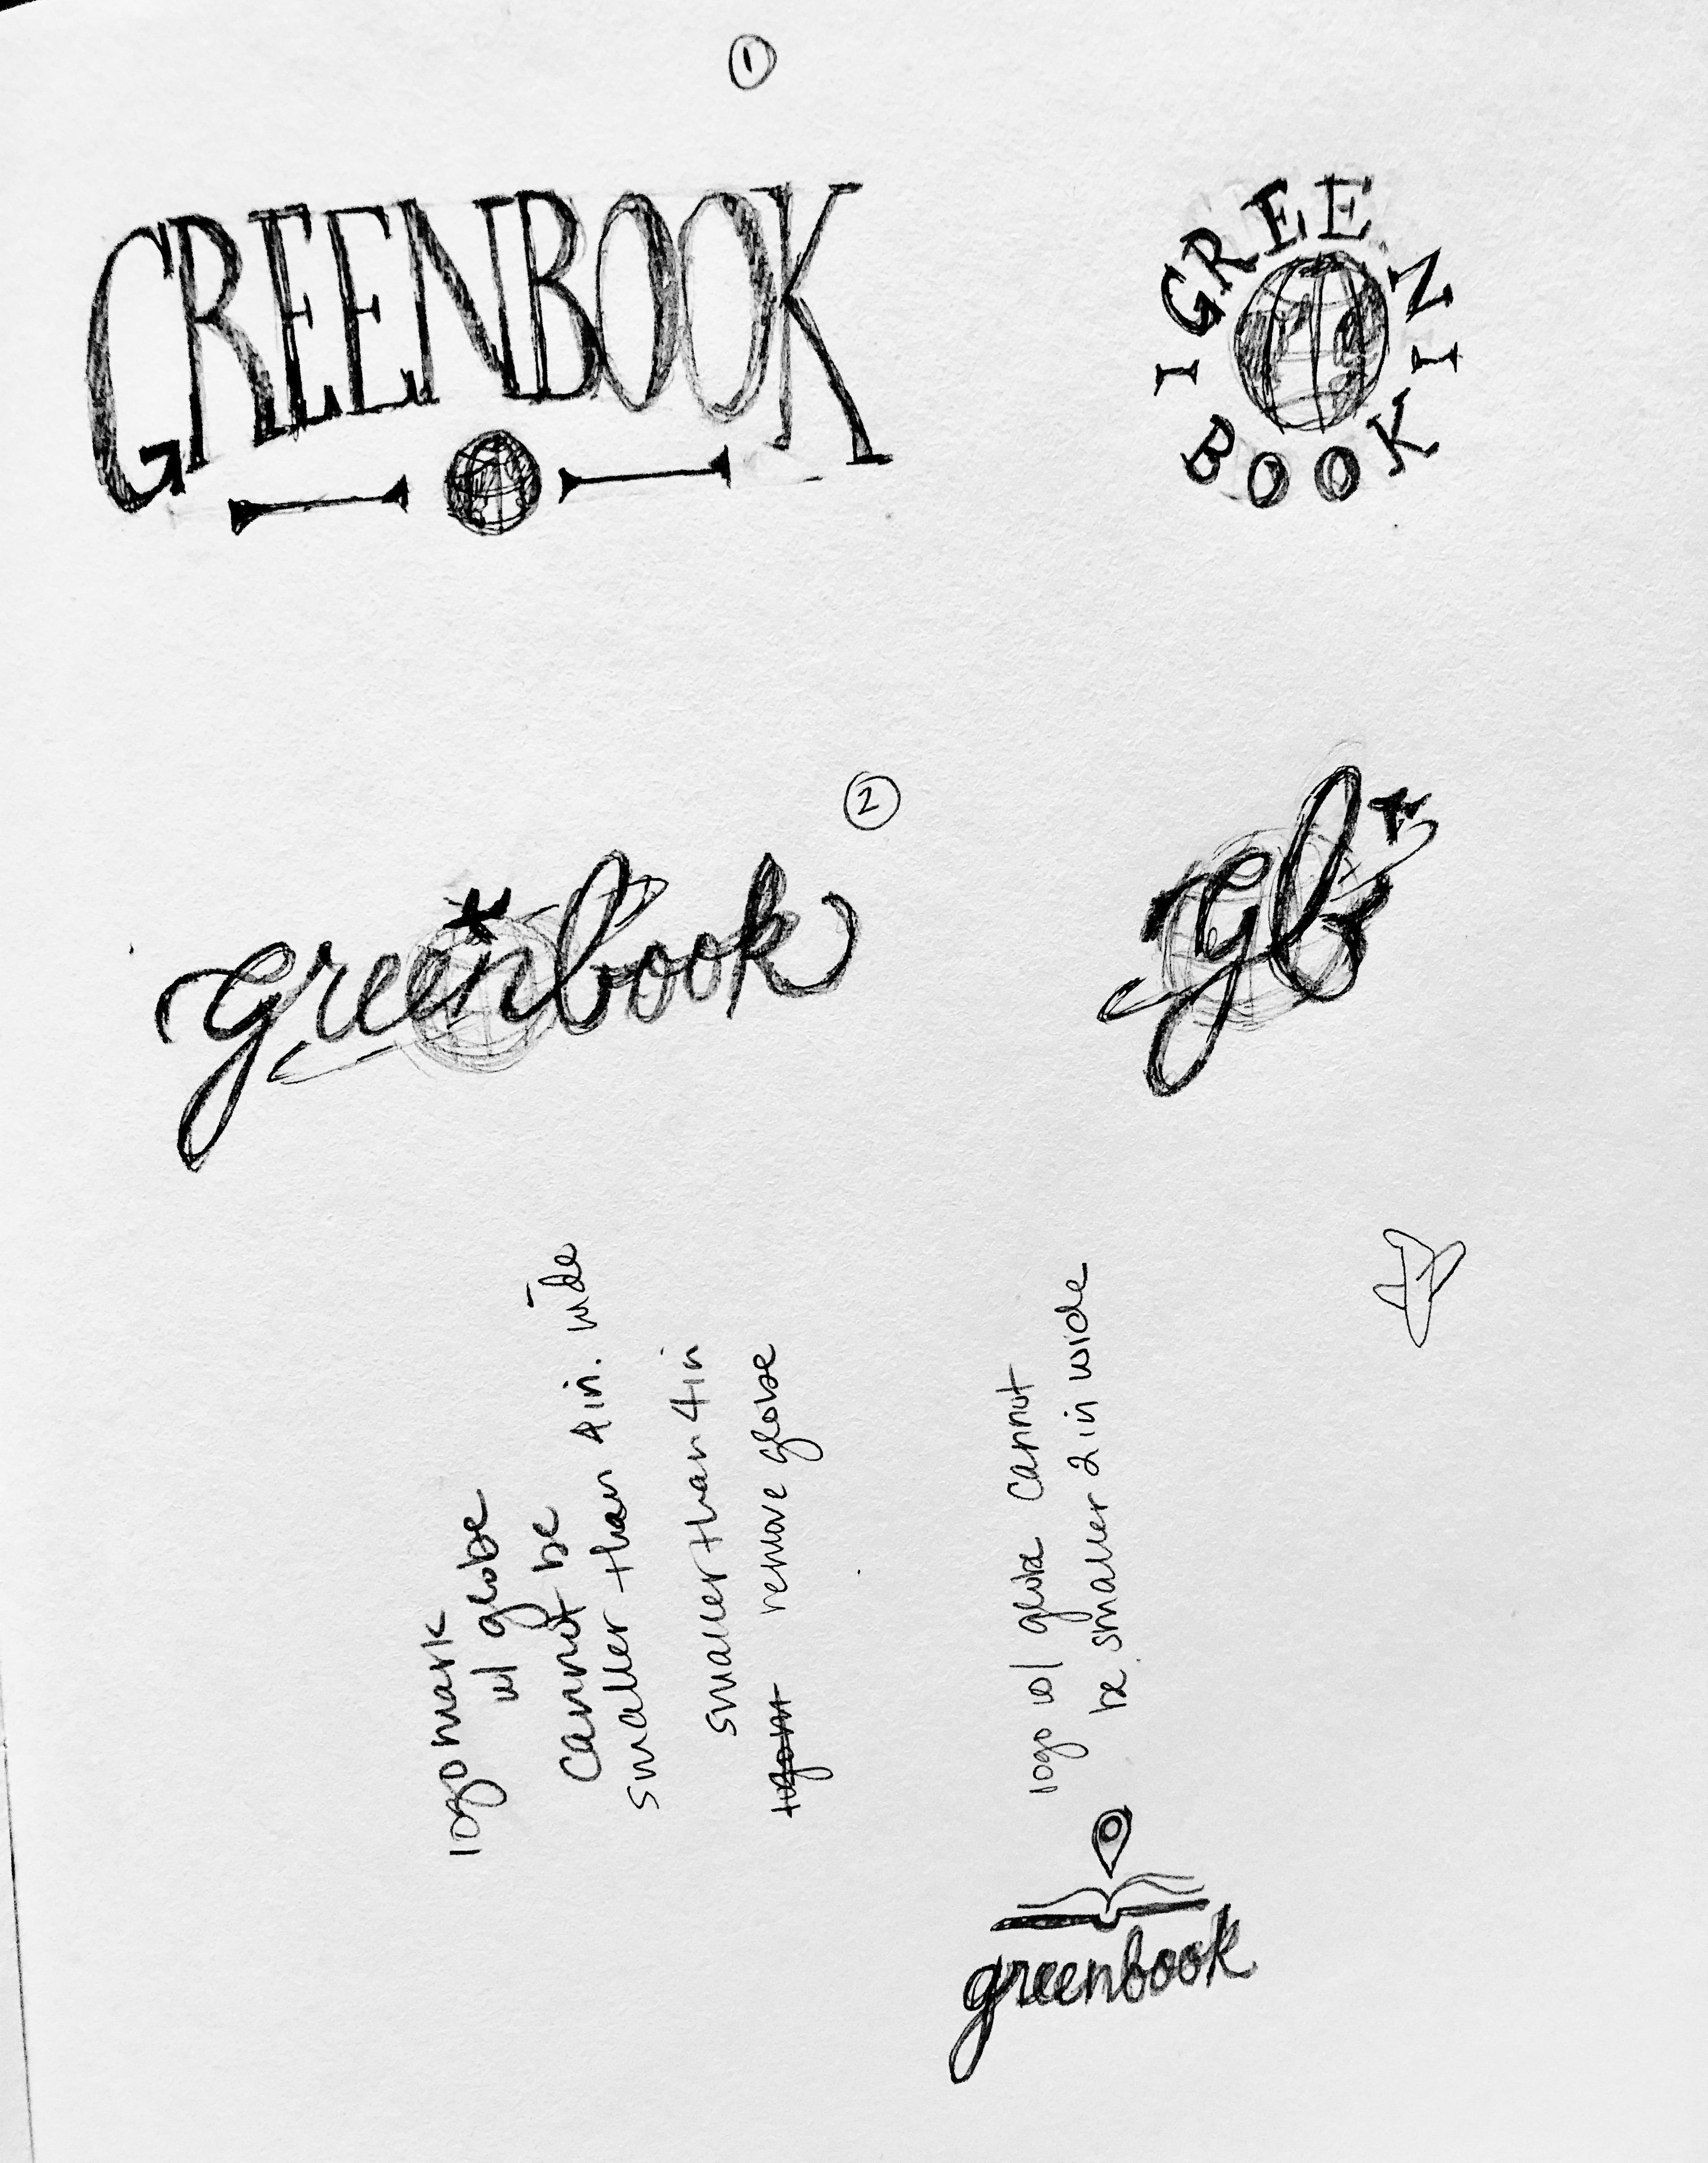 1
GREENBOOK
I GREEN I
BOOK
2
greenbook
gb
logomark
w/ globe
cannot be
smaller than 4 in. wide
smaller than 4 in
remove globe
logo w/ globe cannot
be smaller 2 in wide
greenbook